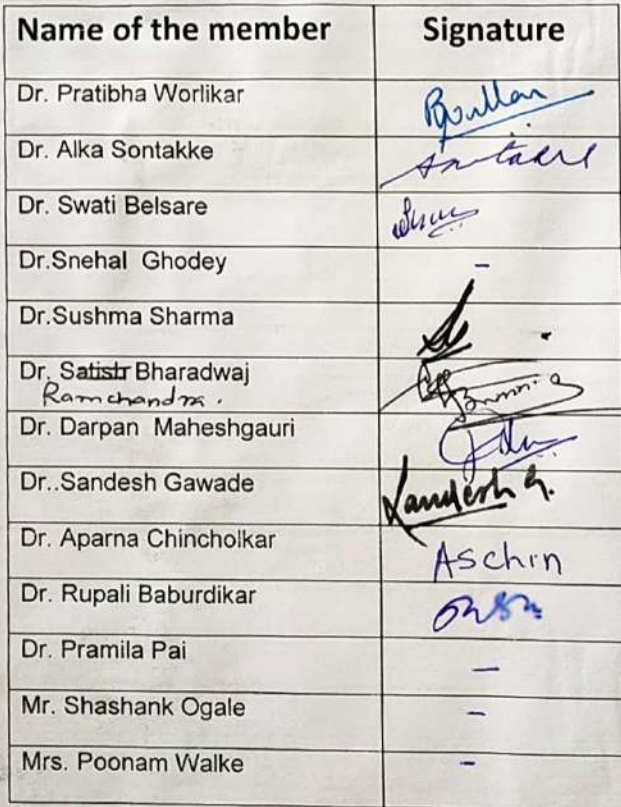 Name of the member Signature
Dr. Pratibha Worlikar
Dr. Alka Sontakke Sontakke
Dr. Swati Belsare
Dr.Snehal Ghodey -
Dr.Sushma Sharma
Dr. Satish Bharadwaj
Ramchandra.
Dr. Darpan Maheshgauri
Dr..Sandesh Gawade Sandesh G.
Dr. Aparna Chincholkar Aschin
Dr. Rupali Baburdikar
Dr. Pramila Pai -
Mr. Shashank Ogale -
Mrs. Poonam Walke -